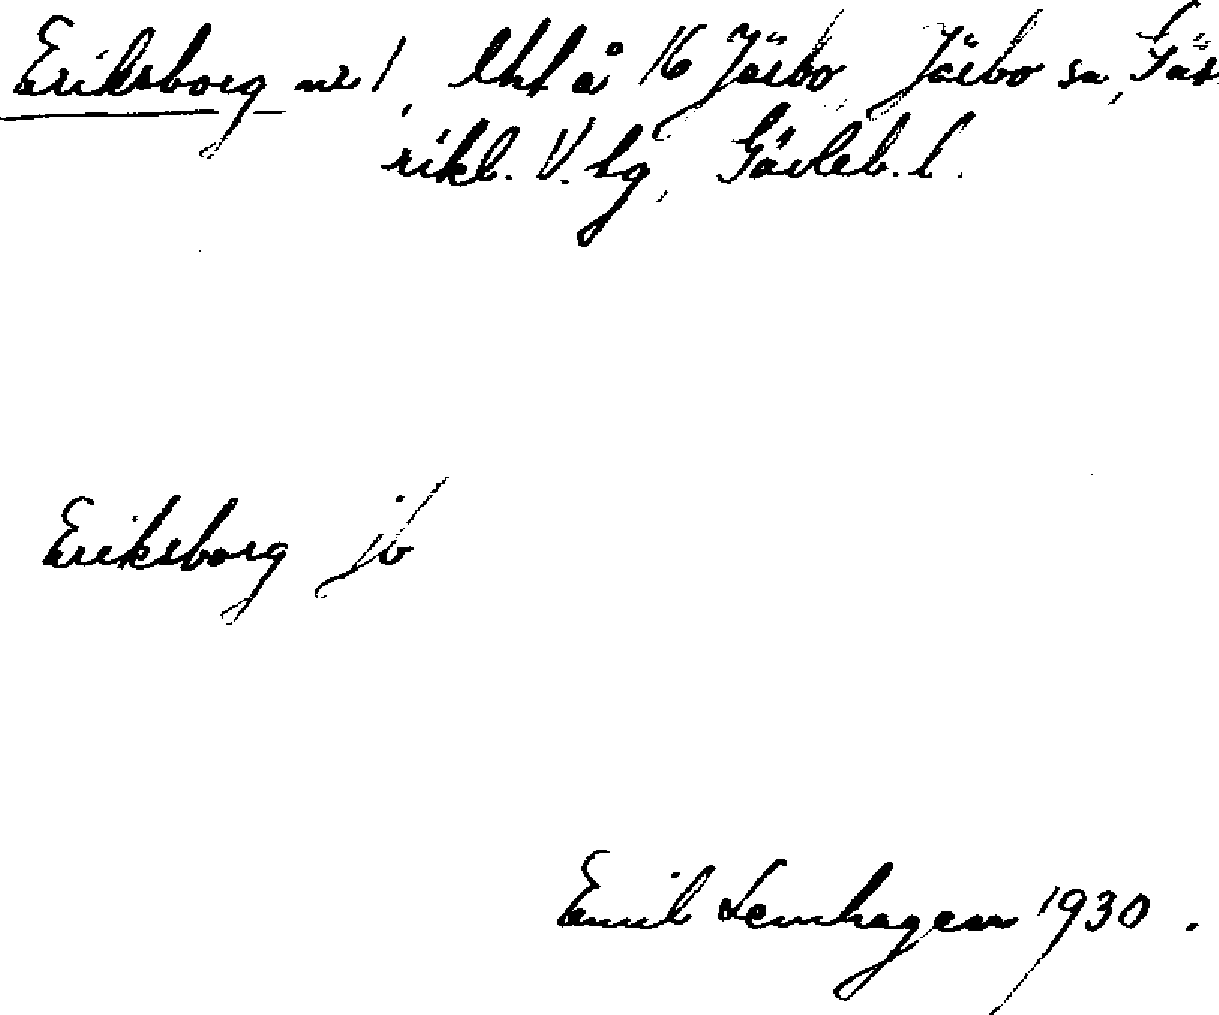 Eriksborg nr 1, lht å 16 Järbo, Järbo sn, Gäst
rikl. V. tg, Gävleb. l.
Eriksborg jb
Emil Lemhagen 1930.